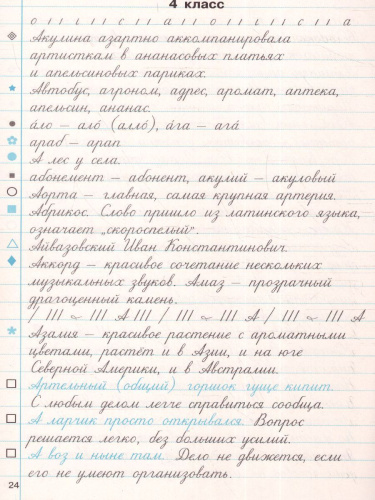 4 класс
Акулина азартно аккомпанировала
артисткам в ананасовых платьях
и апельсиновых париках.
Автобус, агроном, адрес, аромат, аптека,
апельсин, ананас.
áло – алó (аллó), áга – агá
араб – арап
А лес у села.
абонемент – абонент, акулий – акуловый
Аорта – главная, самая крупная артерия.
Абрикос. Слово пришло из латинского языка,
означает „скороспелый".
Айвазовский Иван Константинович.
Аккорд – красивое сочетание нескольких
музыкальных звуков. Алмаз – прозрачный
драгоценный камень.
Азалия – красивое растение с ароматными
цветами, растёт и в Азии, и на юге
Северной Америки, и в Австралии.
Артельный (общий) горшок гуще кипит.
С любым делом легче справиться сообща.
А ларчик просто открывался. Вопрос
решается легко, без больших усилий.
А воз и ныне там. Дело не движется, если
его не умеют организовать.
24